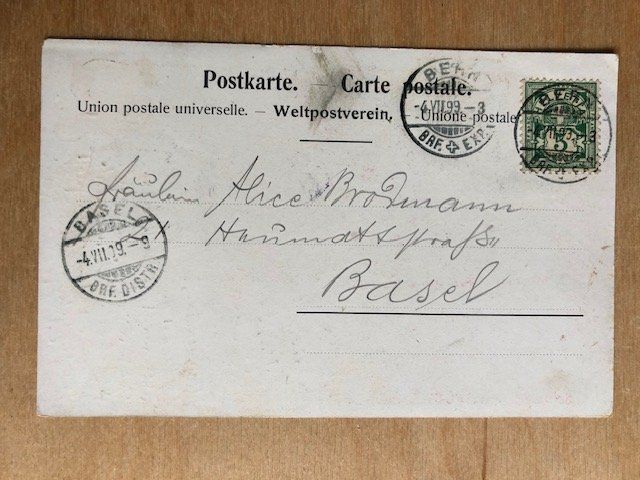 Postkarte. – Carte postale.
Union postale universelle. – Weltpostverein. Unione postale
BERN
-4.VII.99.-3
BRF. EXP.
BERN
5
Fräulein Alice Brodmann
BASEL
-4.VII.99.-9
BRF. DISTR.
Basel